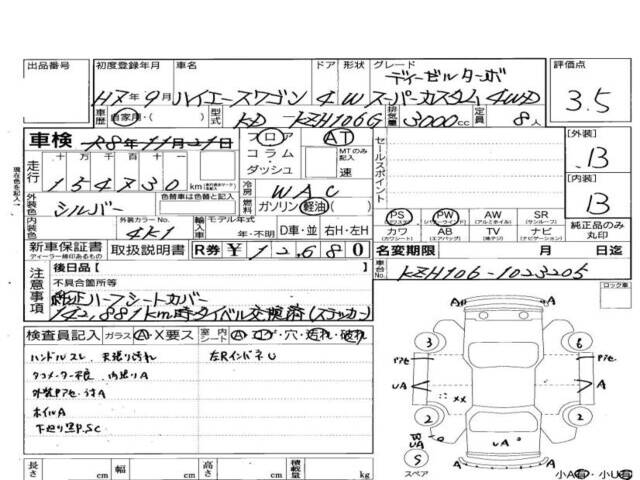 出品番号 初度登録年月 車名 ドア 形状 グレード 評価点
H7年9月 ハイエースワゴン 4 W ディーゼルターボ スーパーカスタム 4WD 3.5
車歴 自家用・( ) 型式 KD-KZH106G 排気量 3000cc 定員 8人
車検 R8年11月21日 フロア AT [外装]
コラム・ダッシュ MTのみ記入 速 セールスポイント B
走行 十 万 千 百 十 一
154730 km 冷房 WAC [内装]
B
外装色 シルバー 色替車は色替と記入 ガソリン 軽油・( ) PS PW AW SR
(パワステ) (パワーウインド) (アルミホイル) (サンルーフ)
内装色 外装カラーNo. 4K1 輸入車 モデル年式 年・不明 D車・並 右H・左H カワ AB TV ナビ 純正品のみ丸印
(カワシート) (エアバッグ) (地デジ) (ナビゲーション)
新車保証書 取扱説明書 R券 ¥12,680 名変期限 月 日迄
ディーラー様印あるもの
注意事項 後日品[ ] 車台No. KZH106-1023205
不具合箇所等 ロック車
純正ハーフシートカバー
142,881km時タイベル交換済(ステッカー)
検査員記入 ガラス A・X要ス 室内 シート A・コゲ・穴・汚れ・破れ
ハンドルスレ 天張り汚れ 左RインパネU
タコメーター不良 内張りA
外装Pアセ・うすA
ホイルA
下廻り黒P,S,C
A A
3 6
Pアセ Pアセ
UA A
xx
2 2
UA UA
S
スペア A A
長さ cm 幅 cm 高さ cm 積載量 kg 小A有・小U有
現在色を記入